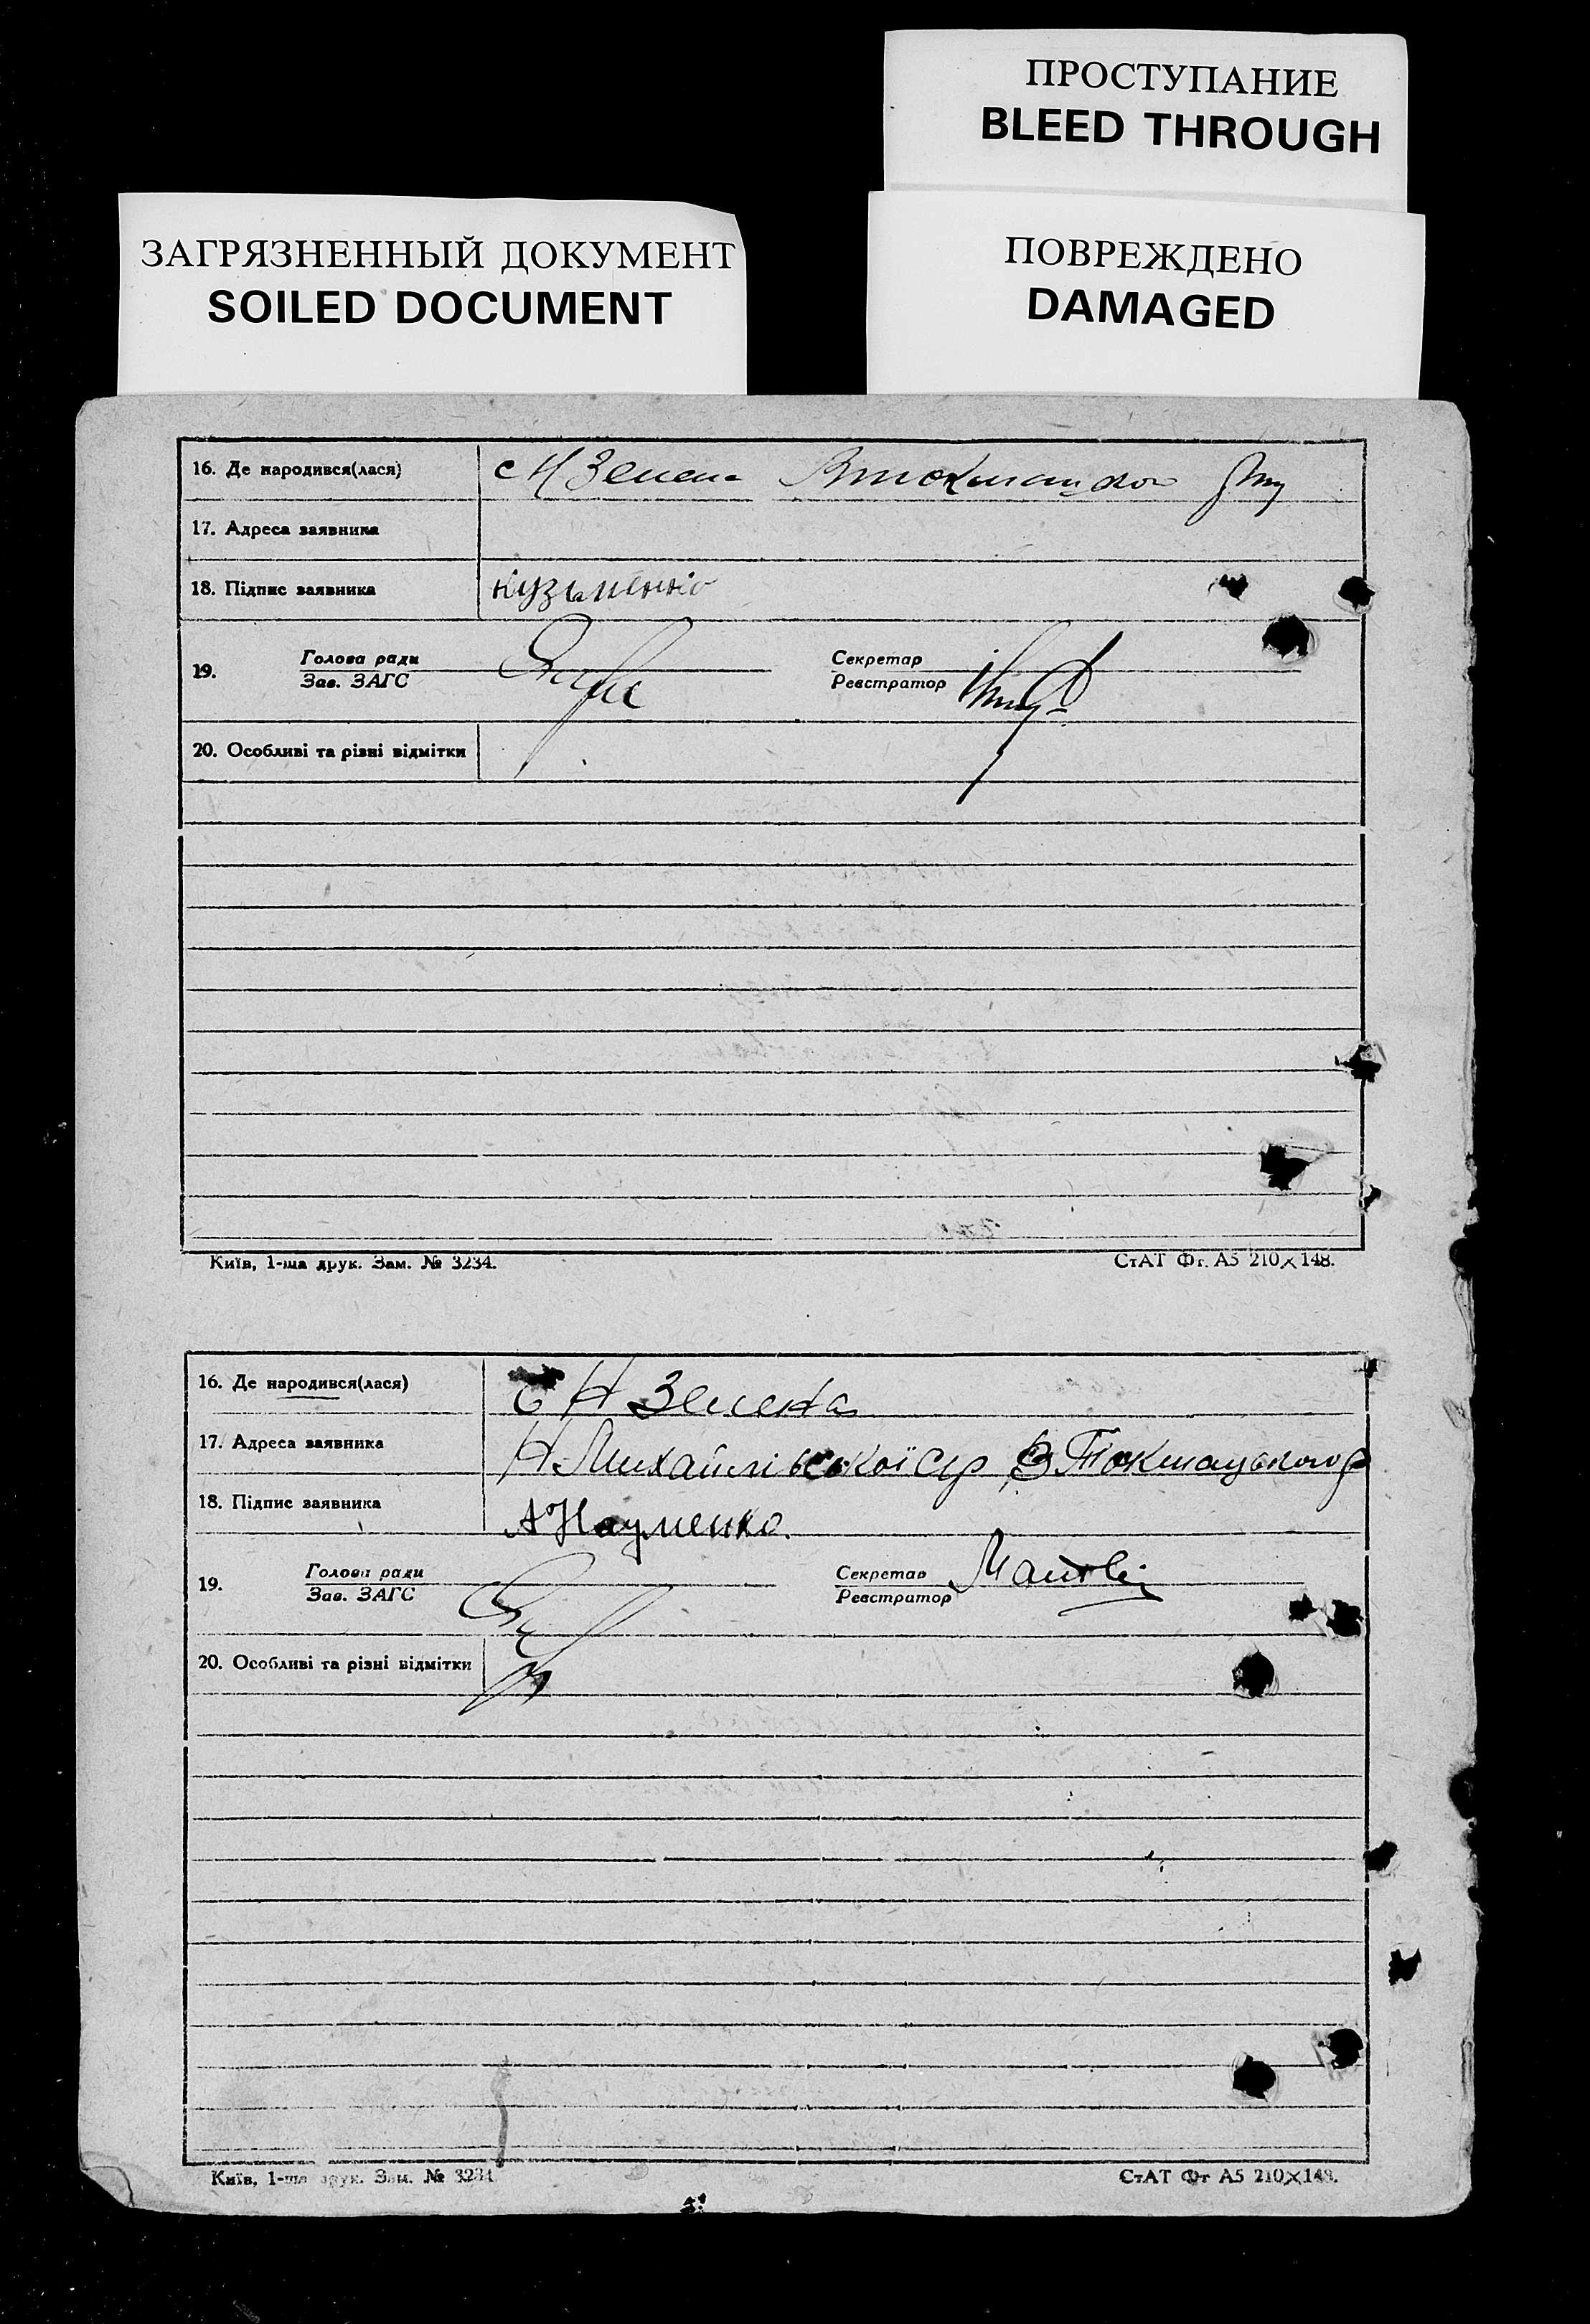 ПРОСТУПАНИЕ
BLEED THROUGH
ЗАГРЯЗНЕННЫЙ ДОКУМЕНТ
SOILED DOCUMENT
ПОВРЕЖДЕНО
DAMAGED
16. Де народився(лася) с Н Зелена
17. Адреса заявника
18. Підпис заявника Кузьменко
19. Голова ради Секретар
Зав. ЗАГС Реєстратор
20. Особливі та різні відмітки
Київ, 1-ша друк. Зам. № 3234. СтАТ Фг. А5 210×148.
16. Де народився(лася) с Н Зелена
17. Адреса заявника Н Михайлівської с/р В Токмацького р
18. Підпис заявника А Науменко.
19. Голова ради Секретар
Зав. ЗАГС Реєстратор
20. Особливі та різні відмітки
Київ, 1-ша друк. Зам. № 3234 СтАТ Фг А5 210×148.